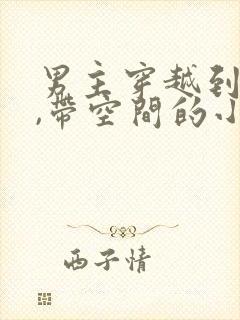 男主穿越到
,带空間的小
西子情